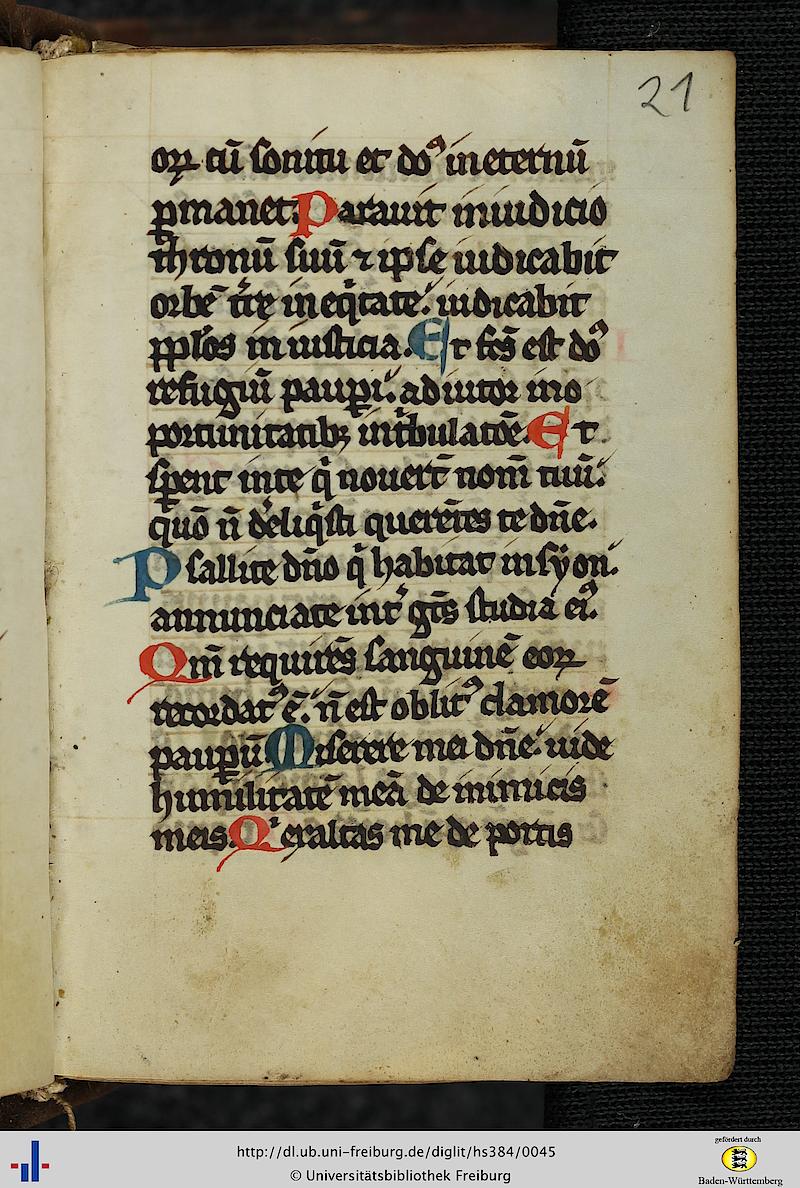 21
oꝝ cū sonitu et do᷒ in eternū
ꝑmanet. Parauit in iudicio
thronū suū ⁊ ipse iudicabit
orbē tr̄e in eq̇tate. iudicabit
pp̄los in iusticia. Et fc̄s est do᷒
refugiū pauꝑi. adiutor in o
portunitatibꝫ in ṫbulatōe. Et
sꝑent in te q̇ nouert̄ nom̄ tuū.
quō n̄ dereliq̇sti querētes te dn̄e.
Psallite dn̄o q̇ habitat in syon.
annunciate int̉ gēs studia ei᷒.
Qm̄ requirēs sanguinē eoꝝ
recordat᷒ ē. n̄ est oblit᷒ clamorē
pauꝑū Miserere mei dn̄e. uide
humilitatē meā de inimicis
meis. Qͥ exaltas me de portis
http://dl.ub.uni-freiburg.de/diglit/hs384/0045
© Universitätsbibliothek Freiburg
gefördert durch
Baden-Württemberg